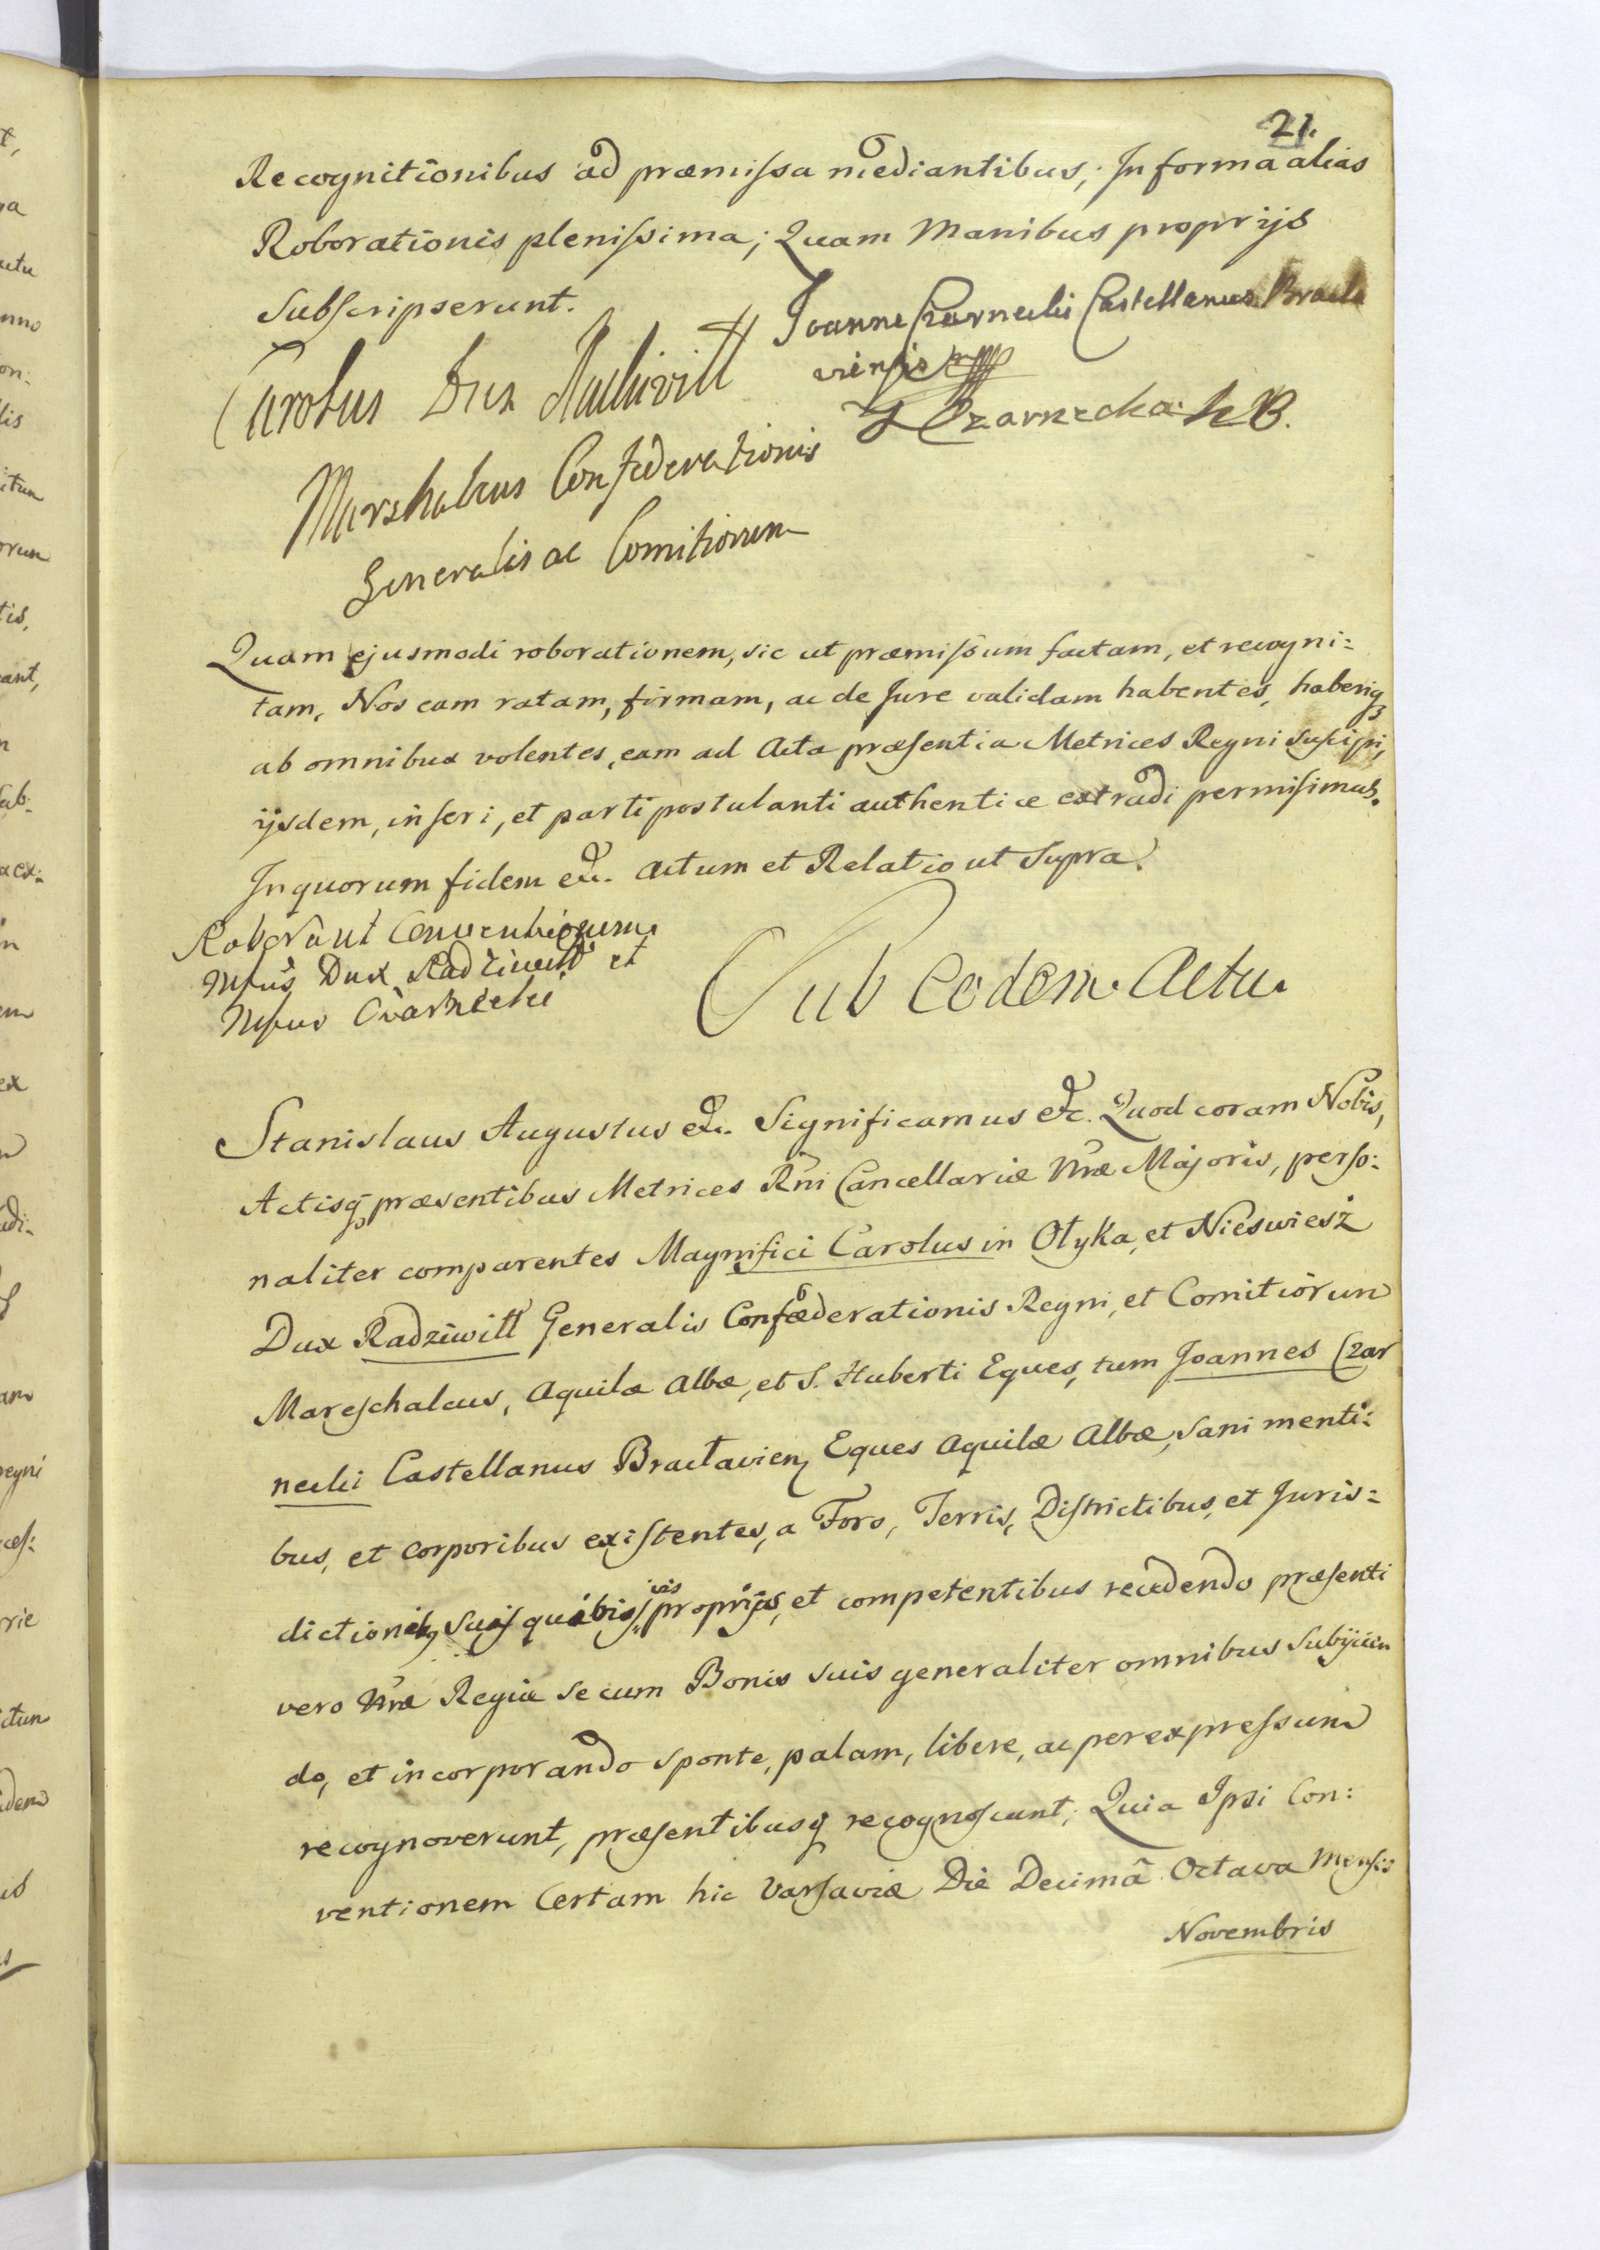 21.
Recognitionibus ad præmissa mediantibus, In forma alias
Roborationis plenissima; Quam Manibus proprijs
Subscripserunt.
Joannes Czarnecki Castellanus Bracla
viensis
Carolus Dux Radziwiłł
L Czarnecka K B.
Marshalcus Confederationis
Generalis ac Comitiorum
Quam ejusmodi roborationem, sic ut præmissum factam, et recogni:
tam, Nos eam ratam, firmam, ac de Jure validam habentes, haberiq
ab omnibus volentes, eam ad Acta præsentia Metrices Regni suscipi,
ijsdem, inseri, et parti postulanti authentice extradi permisimus.
In quorum fidem etc. Actum et Relatio ut Supra.
Roborant Conventionem
Mfcus Dux Radziwiłł et
Mfcus Czarnecki
Sub eodem Actu
Stanislaus Augustus etc. Significamus etc. Quod coram Nobis,
Actisq præsentibus Metrices Rni Cancellariæ Nræ Majoris, perso:
naliter comparentes Magnifici Carolus in Ołyka, et Nieswiesz
Dux Radziwiłł Generalis Confœderationis Regni, et Comitiorum
Mareschalcus, Aquilæ Albæ, et S. Huberti Eques, tum Joannes Czar
necki Castellanus Bracłavien, Eques Aquilæ Albæ, sani menti:
bus, et corporibus existentes, a Foro, Terris, Districtibus, et Juris:
dictionib, suis quibusvis proprijs, et competentibus recedendo præsenti
vero Nræ Regiæ se cum Bonis suis generaliter omnibus subijcien
do, et incorporando sponte, palam, libere, ac per expressum
recognoverunt, præsentibusq recognoscunt; Quia Ipsi Con:
ventionem Certam hic Varsaviæ Die Decimâ Octava Mensis
Novembris